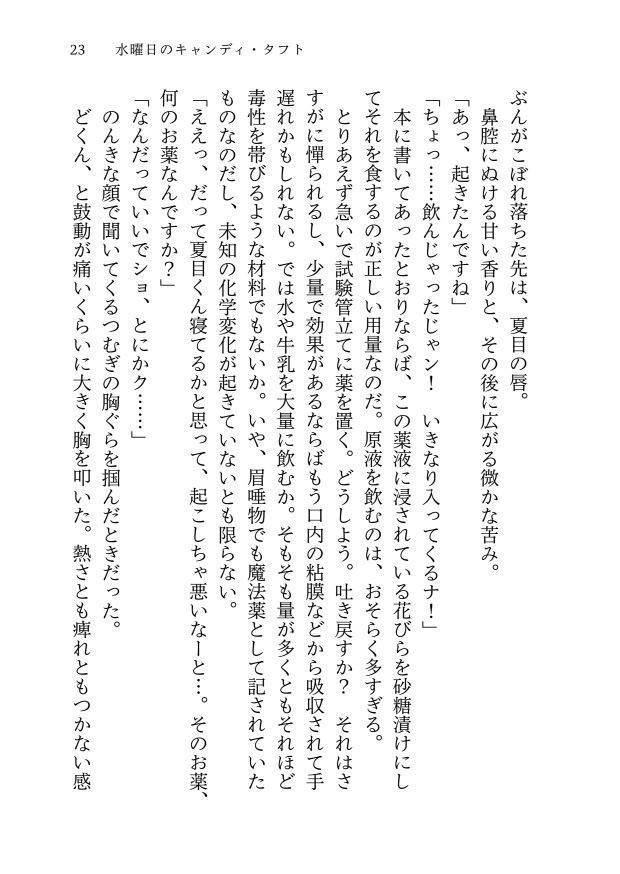 23　水曜日のキャンディ・タフト
ぶんがこぼれ落ちた先は、夏目の唇。
　鼻腔にぬける甘い香りと、その後に広がる微かな苦み。
「あっ、起きたんですね」
「ちょっ……飲んじゃったじゃン！　いきなり入ってくるナ！」
　本に書いてあったとおりならば、この薬液に浸されている花びらを砂糖漬けにし
てそれを食するのが正しい用量なのだ。原液を飲むのは、おそらく多すぎる。
　とりあえず急いで試験管立てに薬を置く。どうしよう。吐き戻すか？　それはさ
すがに憚られるし、少量で効果があるならばもう口内の粘膜などから吸収されて手
遅れかもしれない。では水や牛乳を大量に飲むか。そもそも量が多くともそれほど
毒性を帯びるような材料でもないか。いや、眉唾物でも魔法薬として記されていた
ものなのだし、未知の化学変化が起きていないとも限らない。
「ええっ、だって夏目くん寝てるかと思って、起こしちゃ悪いなーと…。そのお薬、
何のお薬なんですか？」
「なんだっていいでショ、とにかク……」
　のんきな顔で聞いてくるつむぎの胸ぐらを掴んだときだった。
　どくん、と鼓動が痛いくらいに大きく胸を叩いた。熱さとも痺れともつかない感